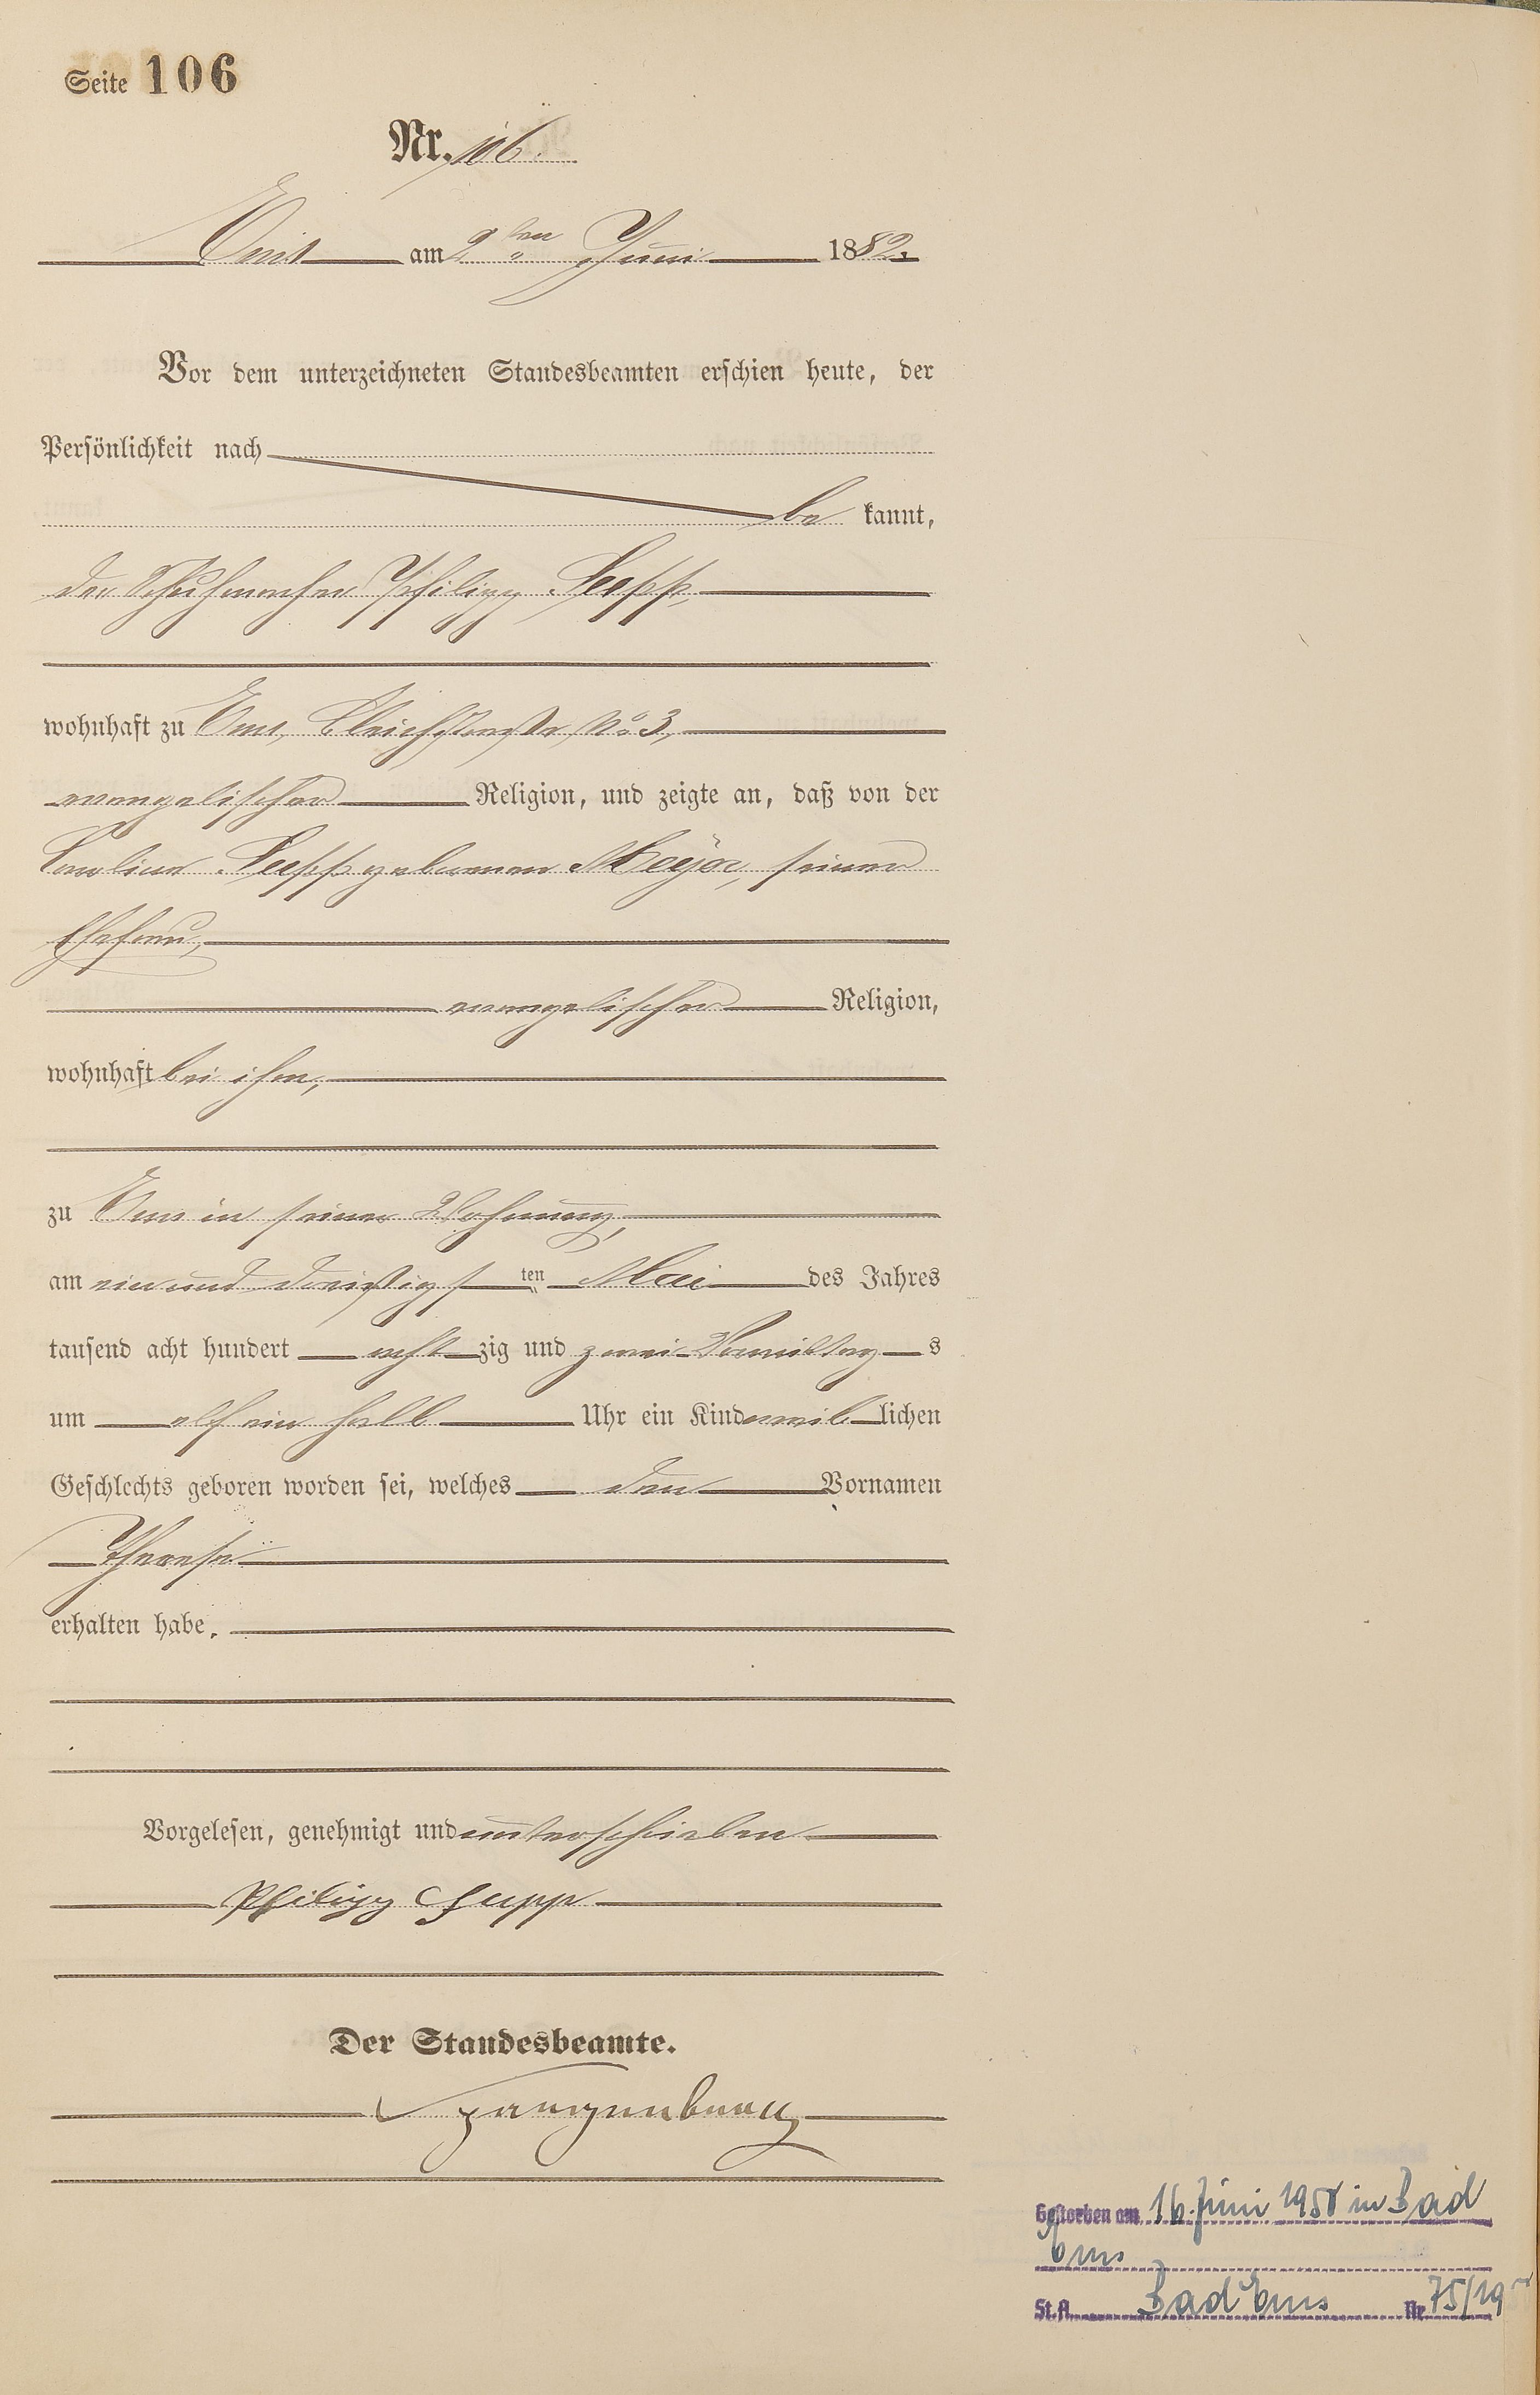 Seite 106
Nr. 106.
Ems am 2ten Juni 1882.
Vor dem unterzeichneten Standesbeamten erschien heute, der
Persönlichkeit nach
be kannt,
der Schuhmacher Philipp Supp,
wohnhaft zu Ems, Bleichstraße No 3,
evangelischer Religion, und zeigte an, daß von der
Caroline Supp gebornen Meyer, seiner
Ehefrau,
evangelischer Religion,
wohnhaft bei ihm,
zu Ems in seiner Wohnung,
am ein und dreißigsten Mai des Jahres
tausend acht hundert acht zig und zwei Vormittag s
um elf ein halb Uhr ein Kind weib lichen
Geschlechts geboren worden sei, welches den Vornamen
Therese
erhalten habe.
Vorgelesen, genehmigt und unterschrieben
Philipp Supp
Der Standesbeamte.
Spangenberg
Gestorben am 16. Juni 1958 in Bad
Ems
St. A. Bad Ems Nr. 75/19